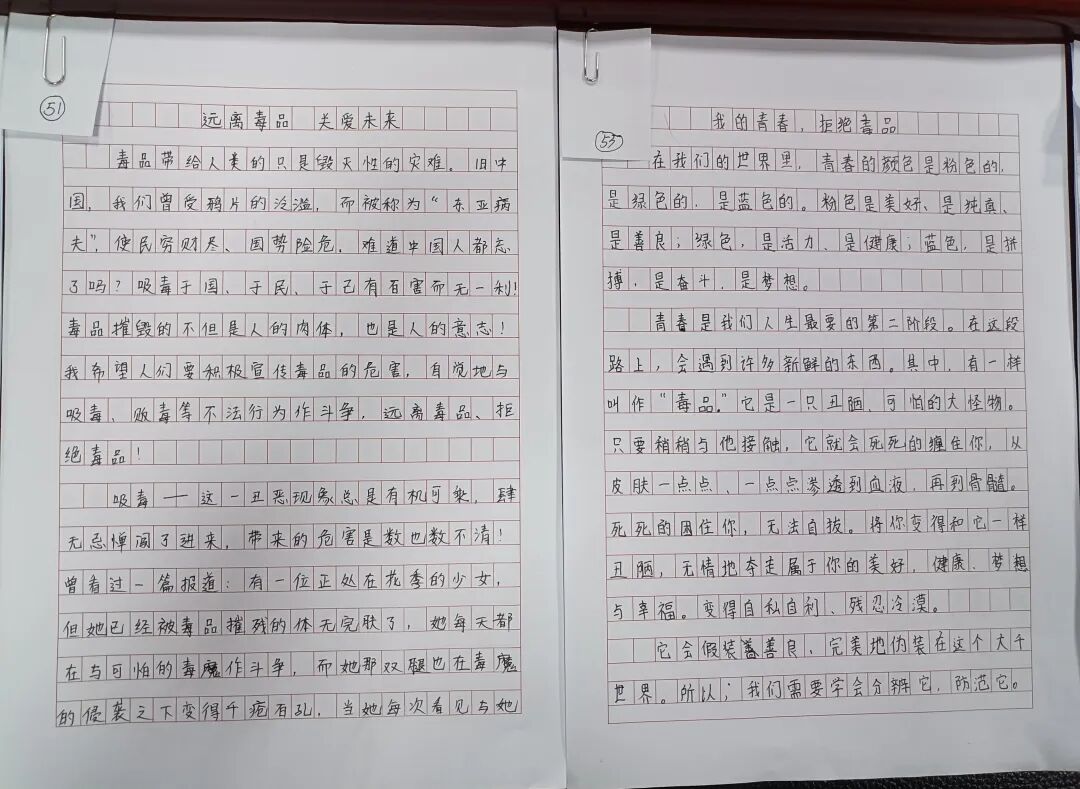 51
远离毒品 关爱未来
毒品带给人类的只是毁灭性的灾难。旧中
国，我们曾受鸦片的泛滥，而被称为“东亚病
夫”，使民穷财尽、国势险危，难道中国人都忘
了吗？吸毒于国、于民、于己有百害而无一利！
毒品摧毁的不但是人的肉体，也是人的意志！
我希望人们要积极宣传毒品的危害，自觉地与
吸毒、贩毒等不法行为作斗争，远离毒品、拒
绝毒品！
吸毒——这一丑恶现象总是有机可乘，肆
无忌惮闯了进来，带来的危害是数也数不清！
曾看过一篇报道：有一位正处在花季的少女，
但她已经被毒品摧残的体无完肤了，她每天都
在与可怕的毒魔作斗争，而她那双腿也在毒魔
的侵袭之下变得千疮百孔，当她每次看见与她
55
我的青春，拒绝毒品
在我们的世界里，青春的颜色是粉色的，
是绿色的，是蓝色的。粉色是美好、是纯真、
是善良；绿色，是活力、是健康；蓝色，是拼
搏，是奋斗，是梦想。
青春是我们人生最要的第二阶段。在这段
路上，会遇到许多新鲜的东西。其中，有一样
叫作“毒品。”它是一只丑陋、可怕的大怪物。
只要稍稍与他接触，它就会死死的缠住你，从
皮肤一点点、一点点渗透到血液，再到骨髓。
死死的困住你，无法自拔。将你变得和它一样
丑陋，无情地夺走属于你的美好，健康、梦想
与幸福。变得自私自利、残忍冷漠。
它会假装善善良、完美地伪装在这个大千
世界。所以；我们需要学会分辨它，防范它。